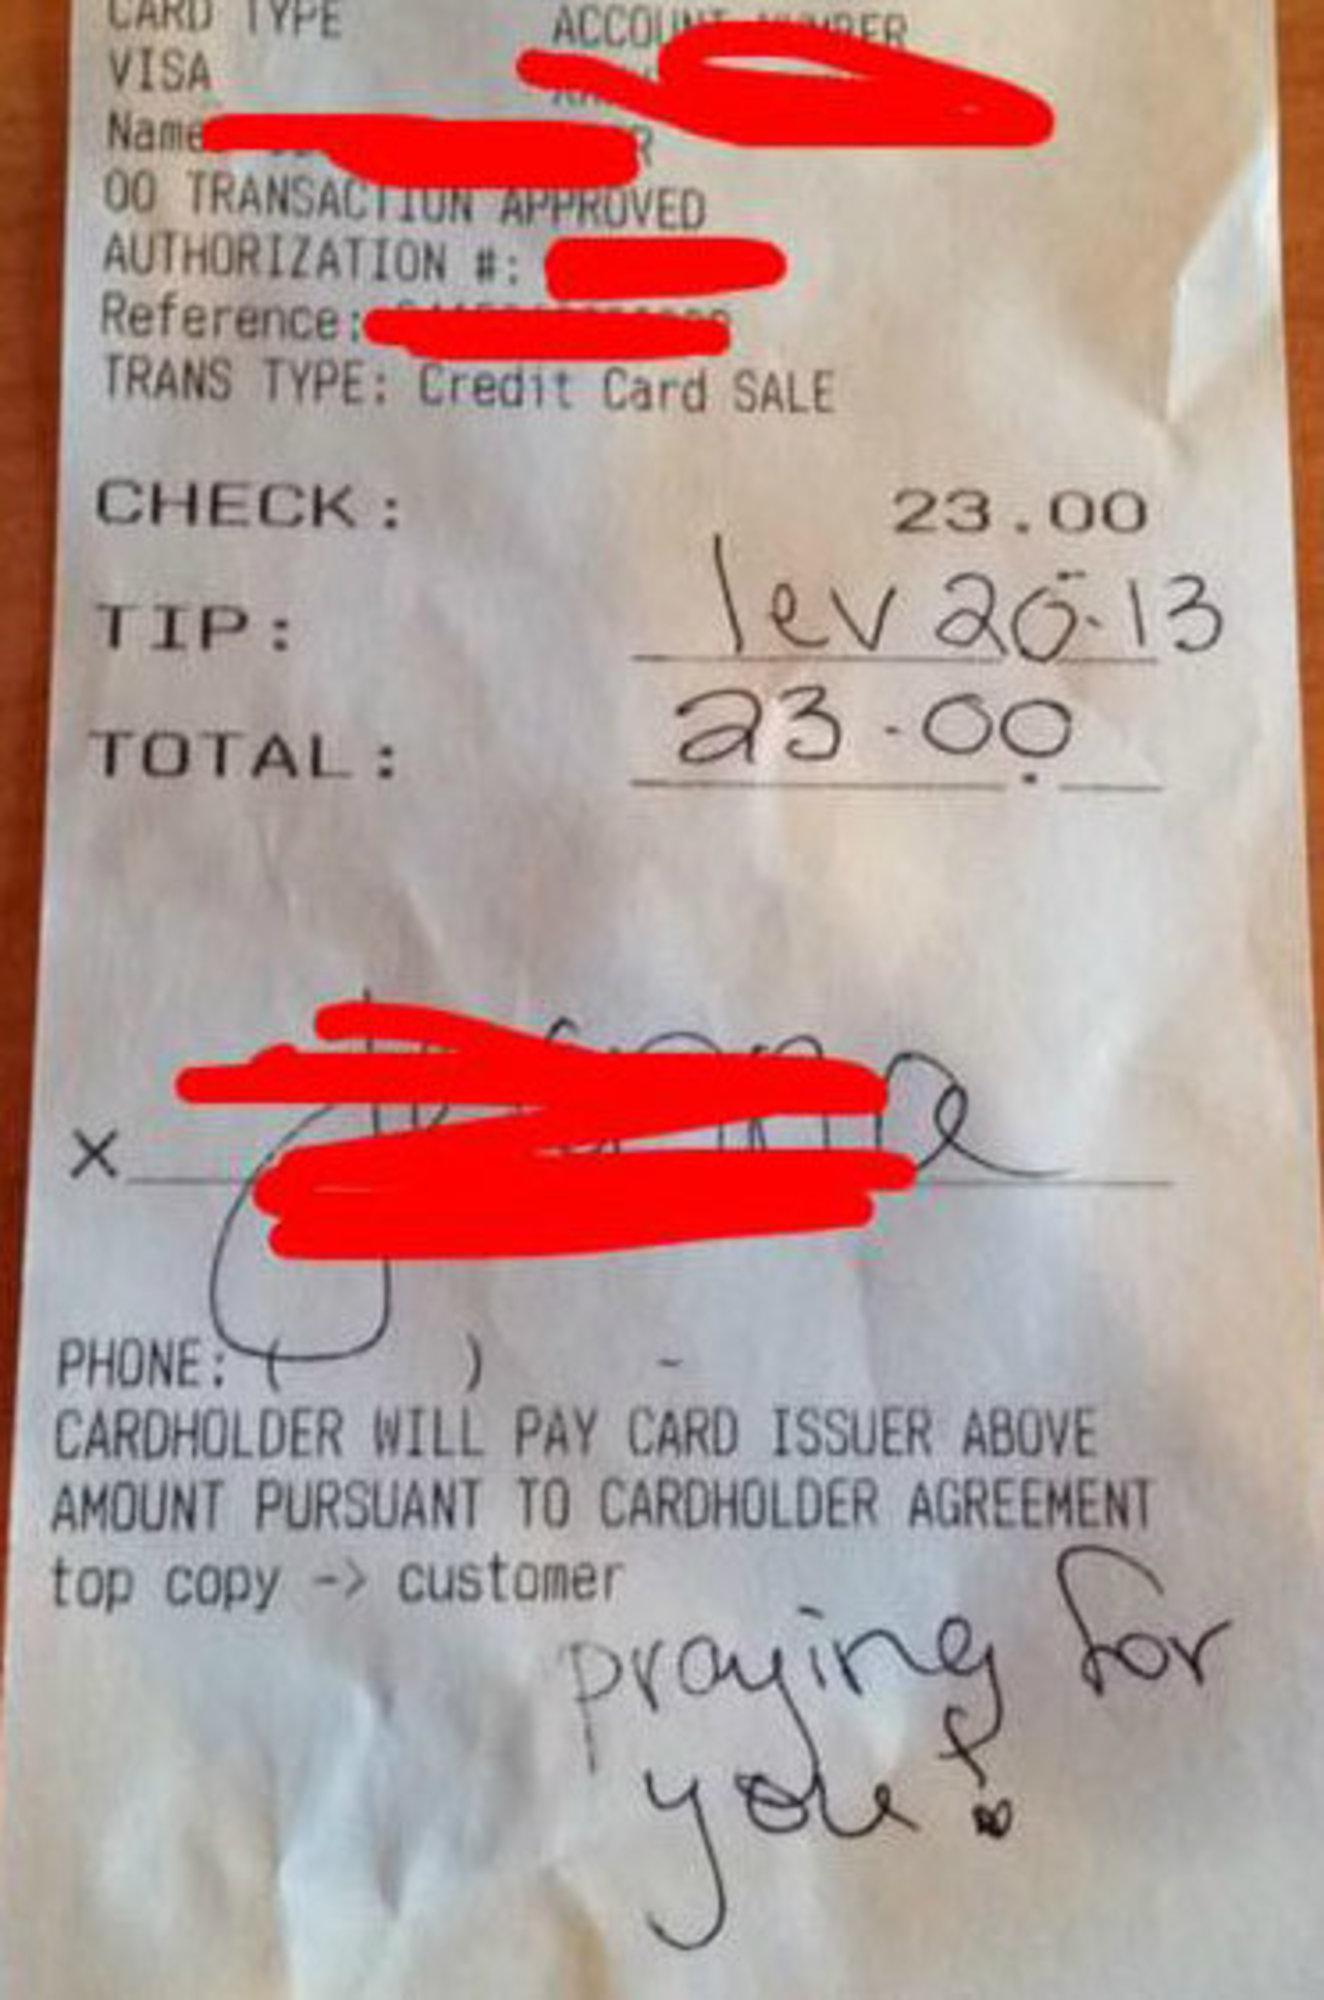 CARD TYPE ACCOUNT NUMBER
VISA
Name
00 TRANSACTION APPROVED
AUTHORIZATION #:
Reference:
TRANS TYPE: Credit Card SALE
CHECK: 23.00
TIP: lev 20:13
TOTAL: 23.00
X
PHONE: ( ) -
CARDHOLDER WILL PAY CARD ISSUER ABOVE
AMOUNT PURSUANT TO CARDHOLDER AGREEMENT
top copy -> customer
praying for
you!